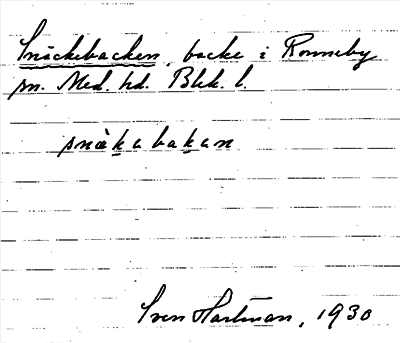 Snäckebacken, backe i Ronneby
sn. Med. hd. Blek. l.
snäkabakan
Sven Hartman, 1930